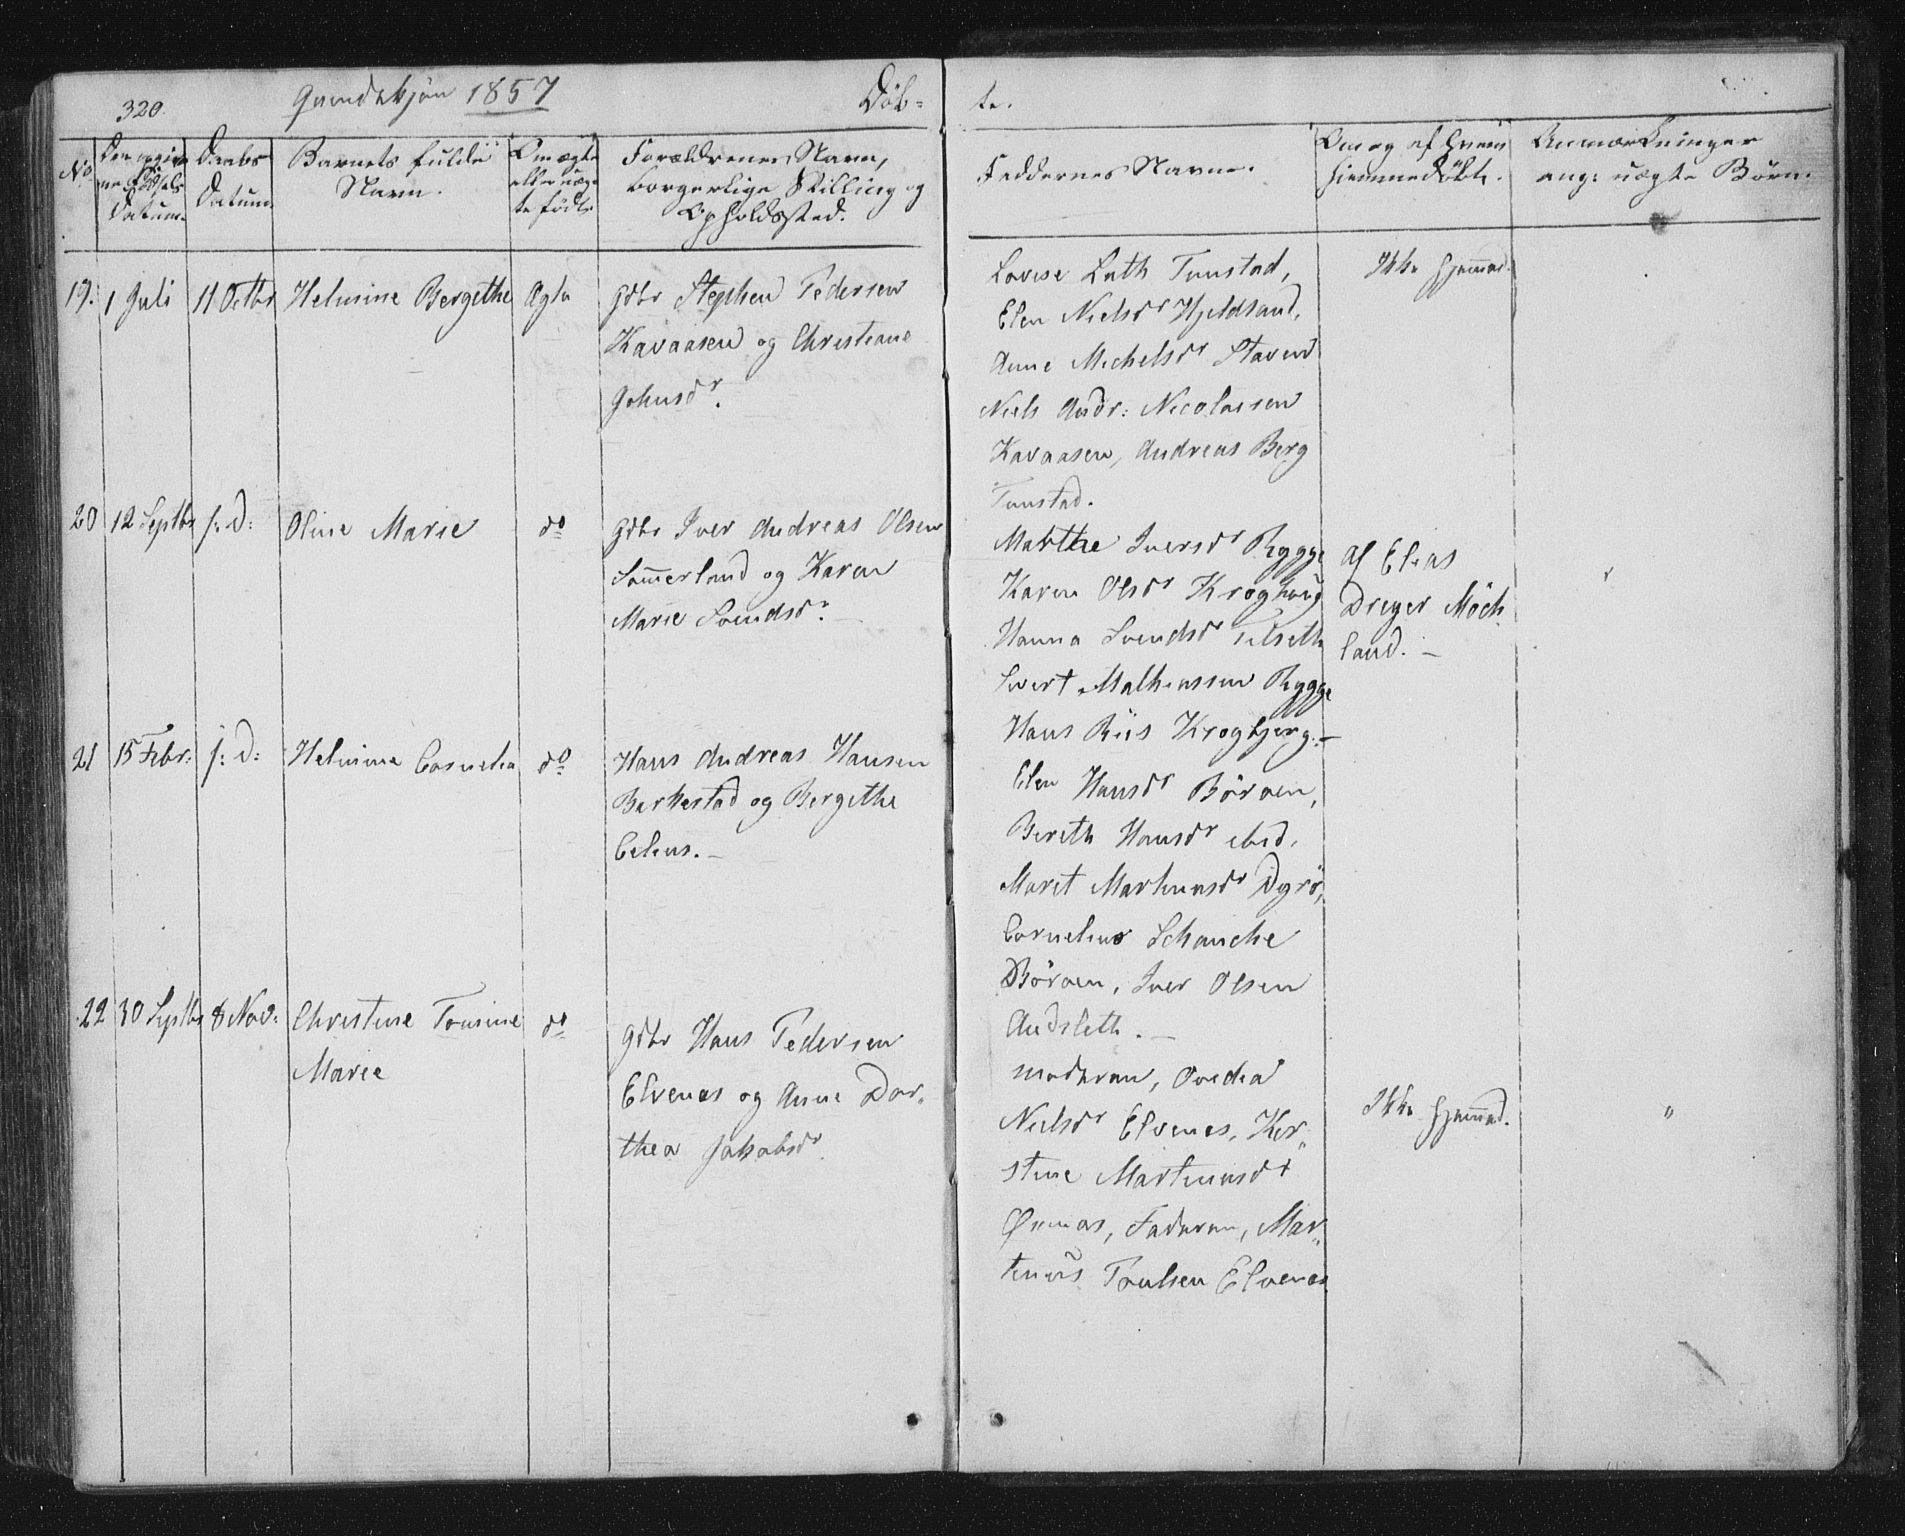 320.
Qvindekjön 1857
Döb-
te.
No
Den opgiv-
ne Födsels
Datum.
Daabs
Datum.
Barnets fulde
Navn.
Om ægte
eller uæg-
te födt.
Forældrenes Navn,
borgerlige Stilling og
Opholdssted.
Faddernes Navne.
Om og af hvem
hjemmedöbt.
Anmærkninger
ang: uægte Börn.
19.
1 Juli
11 Octbr
Helmine Bergethe
Ægte
Gdbr Stephen Pedersen
Kavaasen og Christiane
Johnsdr.
Lovise Tunstad,
Elen Nielsdr Hjeldsand,
Anne Michelsdr Staven
Niels Andr: Nicolaisen
Kavaasen, Andreas Berg
Tunstad.
Ikke hjemmed.
20
12 Septbr
s: D:
Oline Marie
do
Gdbr Iver Andreas Olsen
Sommerland og Karen
Marie Svendsdr.
Marthe Iversdr Rygge
Karen Olsdr
Hanna Svendsdr
Sivert Mathiassen Rygge
Hans Riis Krogbjerg.-
af Elias
Dreyer Möck
land.-
21
15 Febr:
s: D:
Helmine Cornelia
do
Hans Andreas Hansen
Barkestad og Bergithe
Celius.-
Elen Hansdr Böröen,
Bereth Hansdr ibid,
Marit Martinusdr Dyrö,
Cornelius Schanche
Böröen, Iver Olsen
Andsleth.-
22
30 Septbr
8 Nov:
Christine Tomine
Marie
do
Gdbr Hans Pedersen
Elvenes og Anne Dor-
thea Jakobsdr
Moderen, Ovedia
Nielsdr Elvenes, Kir-
stine Martinusdr
, Faderen, Mar-
tinus Poulsen Elvenes
Ikke hjemmed.
"